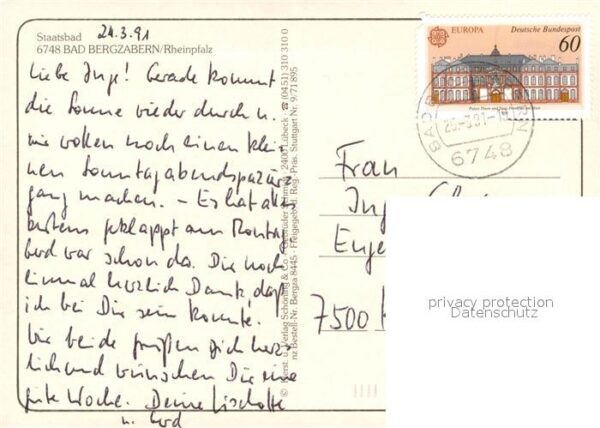 24.3.91
Staatsbad
6748 BAD BERGZABERN/Rheinpfalz
Liebe Inge! Gerade kommt
die Sonne wieder durch u.
wir wollen noch einen klei-
nen Sonntagabendspazier
gang machen. – Es hat
bestens geklappt am Montag
Gerd war schon da. Dir noch
einmal herzlich Dank, daß
ich bei Dir sein konnte.
Wir beide grüßen Dich herz-
lich und wünschen Dir eine
gute Woche. Deine Liselotte
u. Gerd
Kunst- u. Verlag Schöning & Co. + Gebrüder Schmidt · 2400 Lübeck · ☎ (0451) 310 310 0
nz Bestell-Nr. Bergza 8445 · Freigegeb. d. Reg.-Präs. Stuttgart Nr. 9/71895
EUROPA Deutsche Bundespost
60
BAD
25.-3.91-18
6748
Frau
7500
privacy protection
Datenschutz